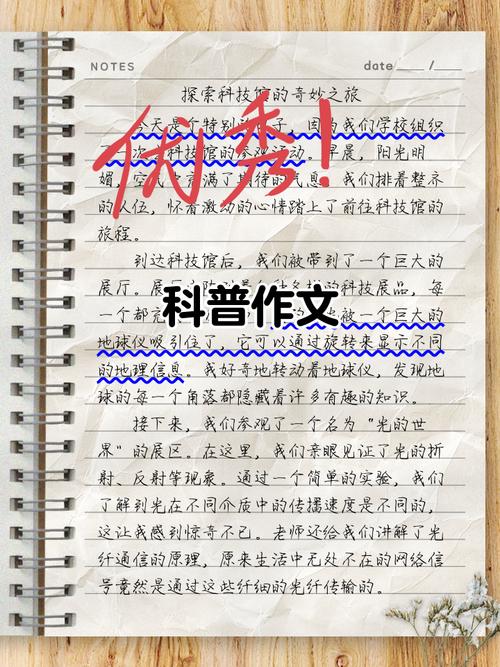 NOTES
date ___ /___
探索科技馆的奇妙之旅
今天是个特别的日子，因为我们学校组织
了一次科技馆的参观活动。早晨，阳光明
媚，空气中充满了期待的气息。我们排着整齐
的队伍，怀着激动的心情踏上了前往科技馆的
旅程。
到达科技馆后，我们被带到了一个巨大的
展厅。展厅 的科技展品，每
一个都充 被一个巨大的
地球仪吸引住了，它可以通过旋转来显示不同
的地理信息。我好奇地转动着地球仪，发现地
球的每一个角落都隐藏着许多有趣的知识。
接下来，我们参观了一个名为“光的世
界”的展区。在这里，我们亲眼见证了光的折
射、反射等现象。通过一个简单的实验，我们
了解到光在不同介质中的传播速度是不同的，
这让我感到惊奇不已。老师还给我们讲解了光
纤通信的原理，原来生活中无处不在的网络信
号竟然是通过这些纤细的光纤传输的。
优秀！
科普作文